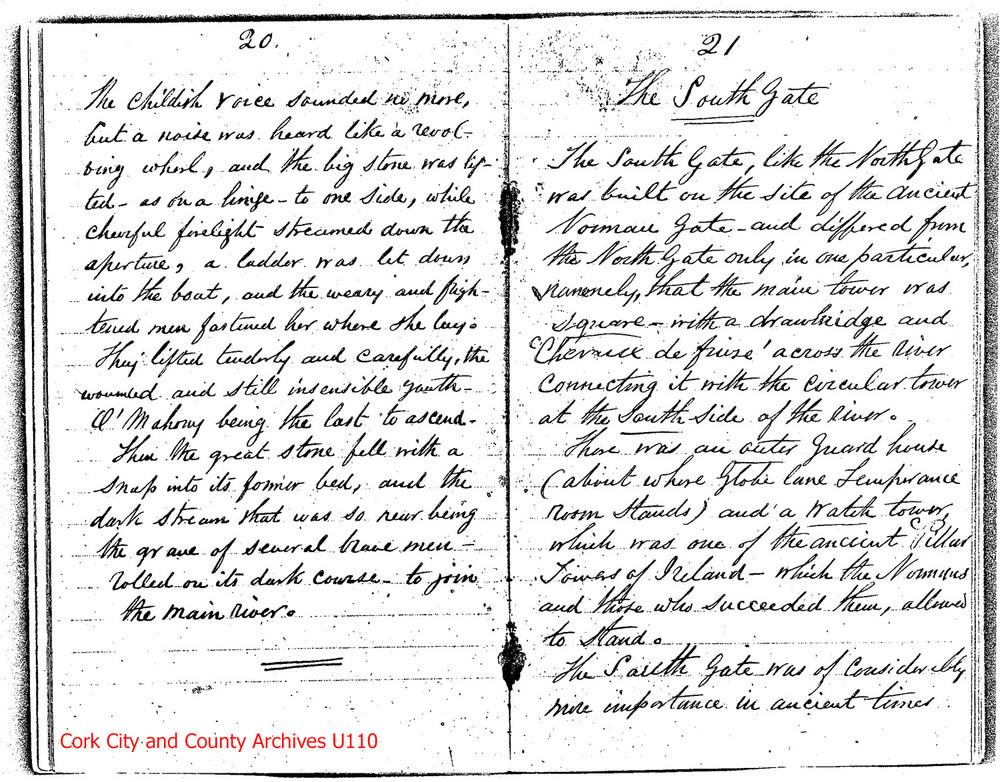 20.
The childish voice sounded no more,
but a noise was heard like a revol-
ving wheel, and the big stone was lif-
ted - as on a hinge - to one side, while
cheerful firelight streamed down the
aperture, a ladder was let down
into the boat, and the weary and frigh-
tened men fastened her where she lay.
They lifted tenderly and carefully, the
wounded and still insensible youth -
O'Mahony being the last to ascend.
Then the great stone fell with a
snap into its former bed, and the
dark stream that was so near being
the grave of several brave men -
rolled on its dark course - to join
the main river.
21
The South Gate
The South Gate, like the North Gate
was built on the site of the ancient
Norman Gate - and differed from
the North Gate only in one particular,
namely, that the main tower was
square - with a drawbridge and
'Chevaux de frise' across the river
connecting it with the circular tower
at the South side of the river.
There was an outer guard house
(about where Globe lane Temperance
room stands) and a watch tower,
which was one of the ancient 'Pillar
Towers of Ireland - which the Normans
and those who succeeded them, allowed
to stand.
The South Gate was of considerably
more importance in ancient times
Cork City and County Archives U110